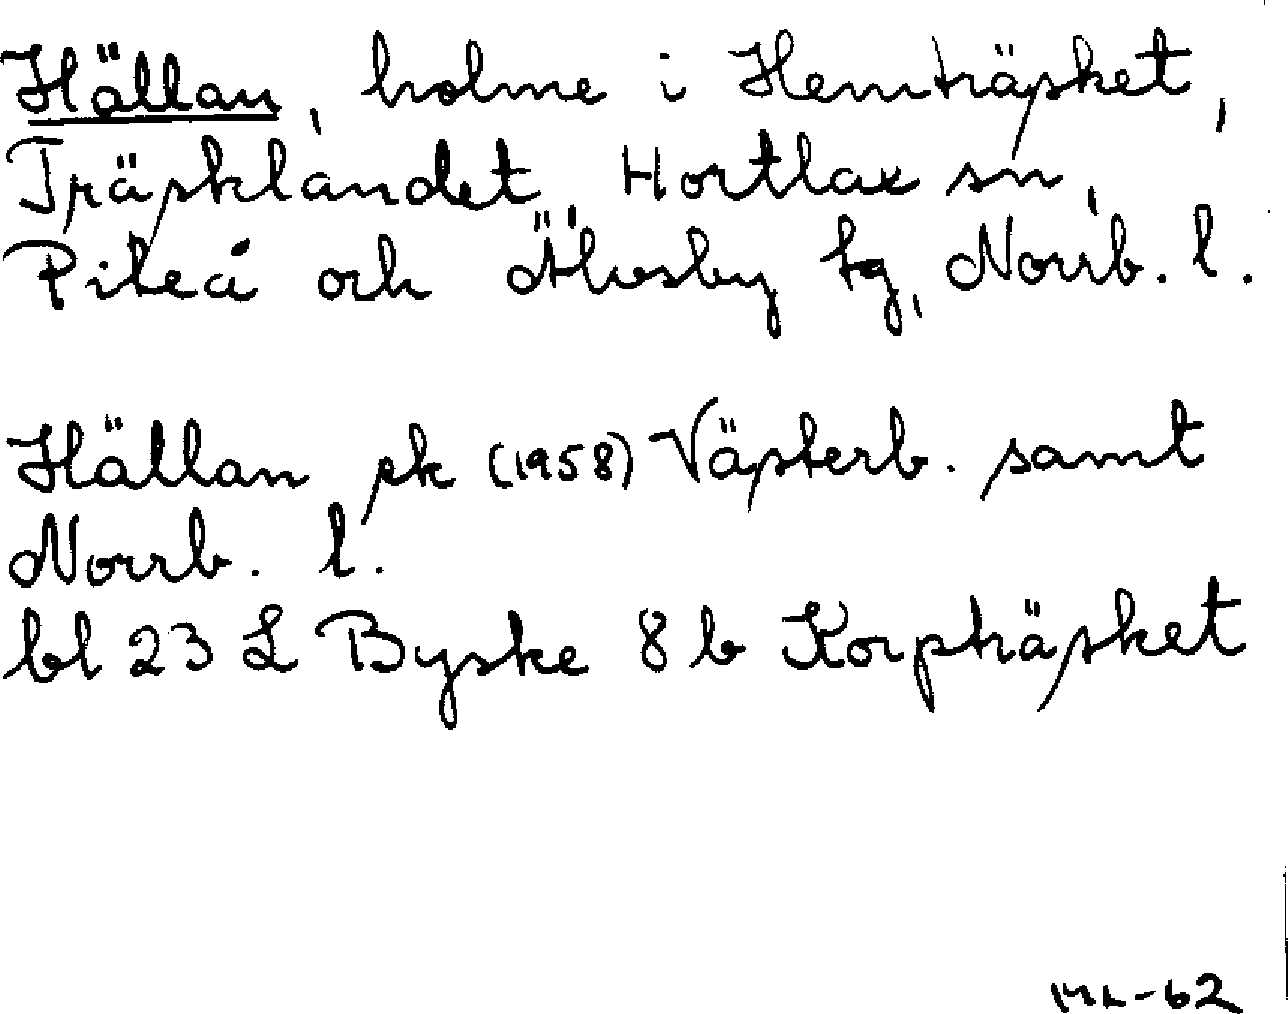 Hällan, holme i Hemträsket,
Träsklandet, Hortlax sn,
Piteå och Älvsby tg, Norrb. l.
Hällan, ek (1958) Västerb. samt
Norrb. l.
bl 23 L Byske 8 b Korpträsket
ML-62